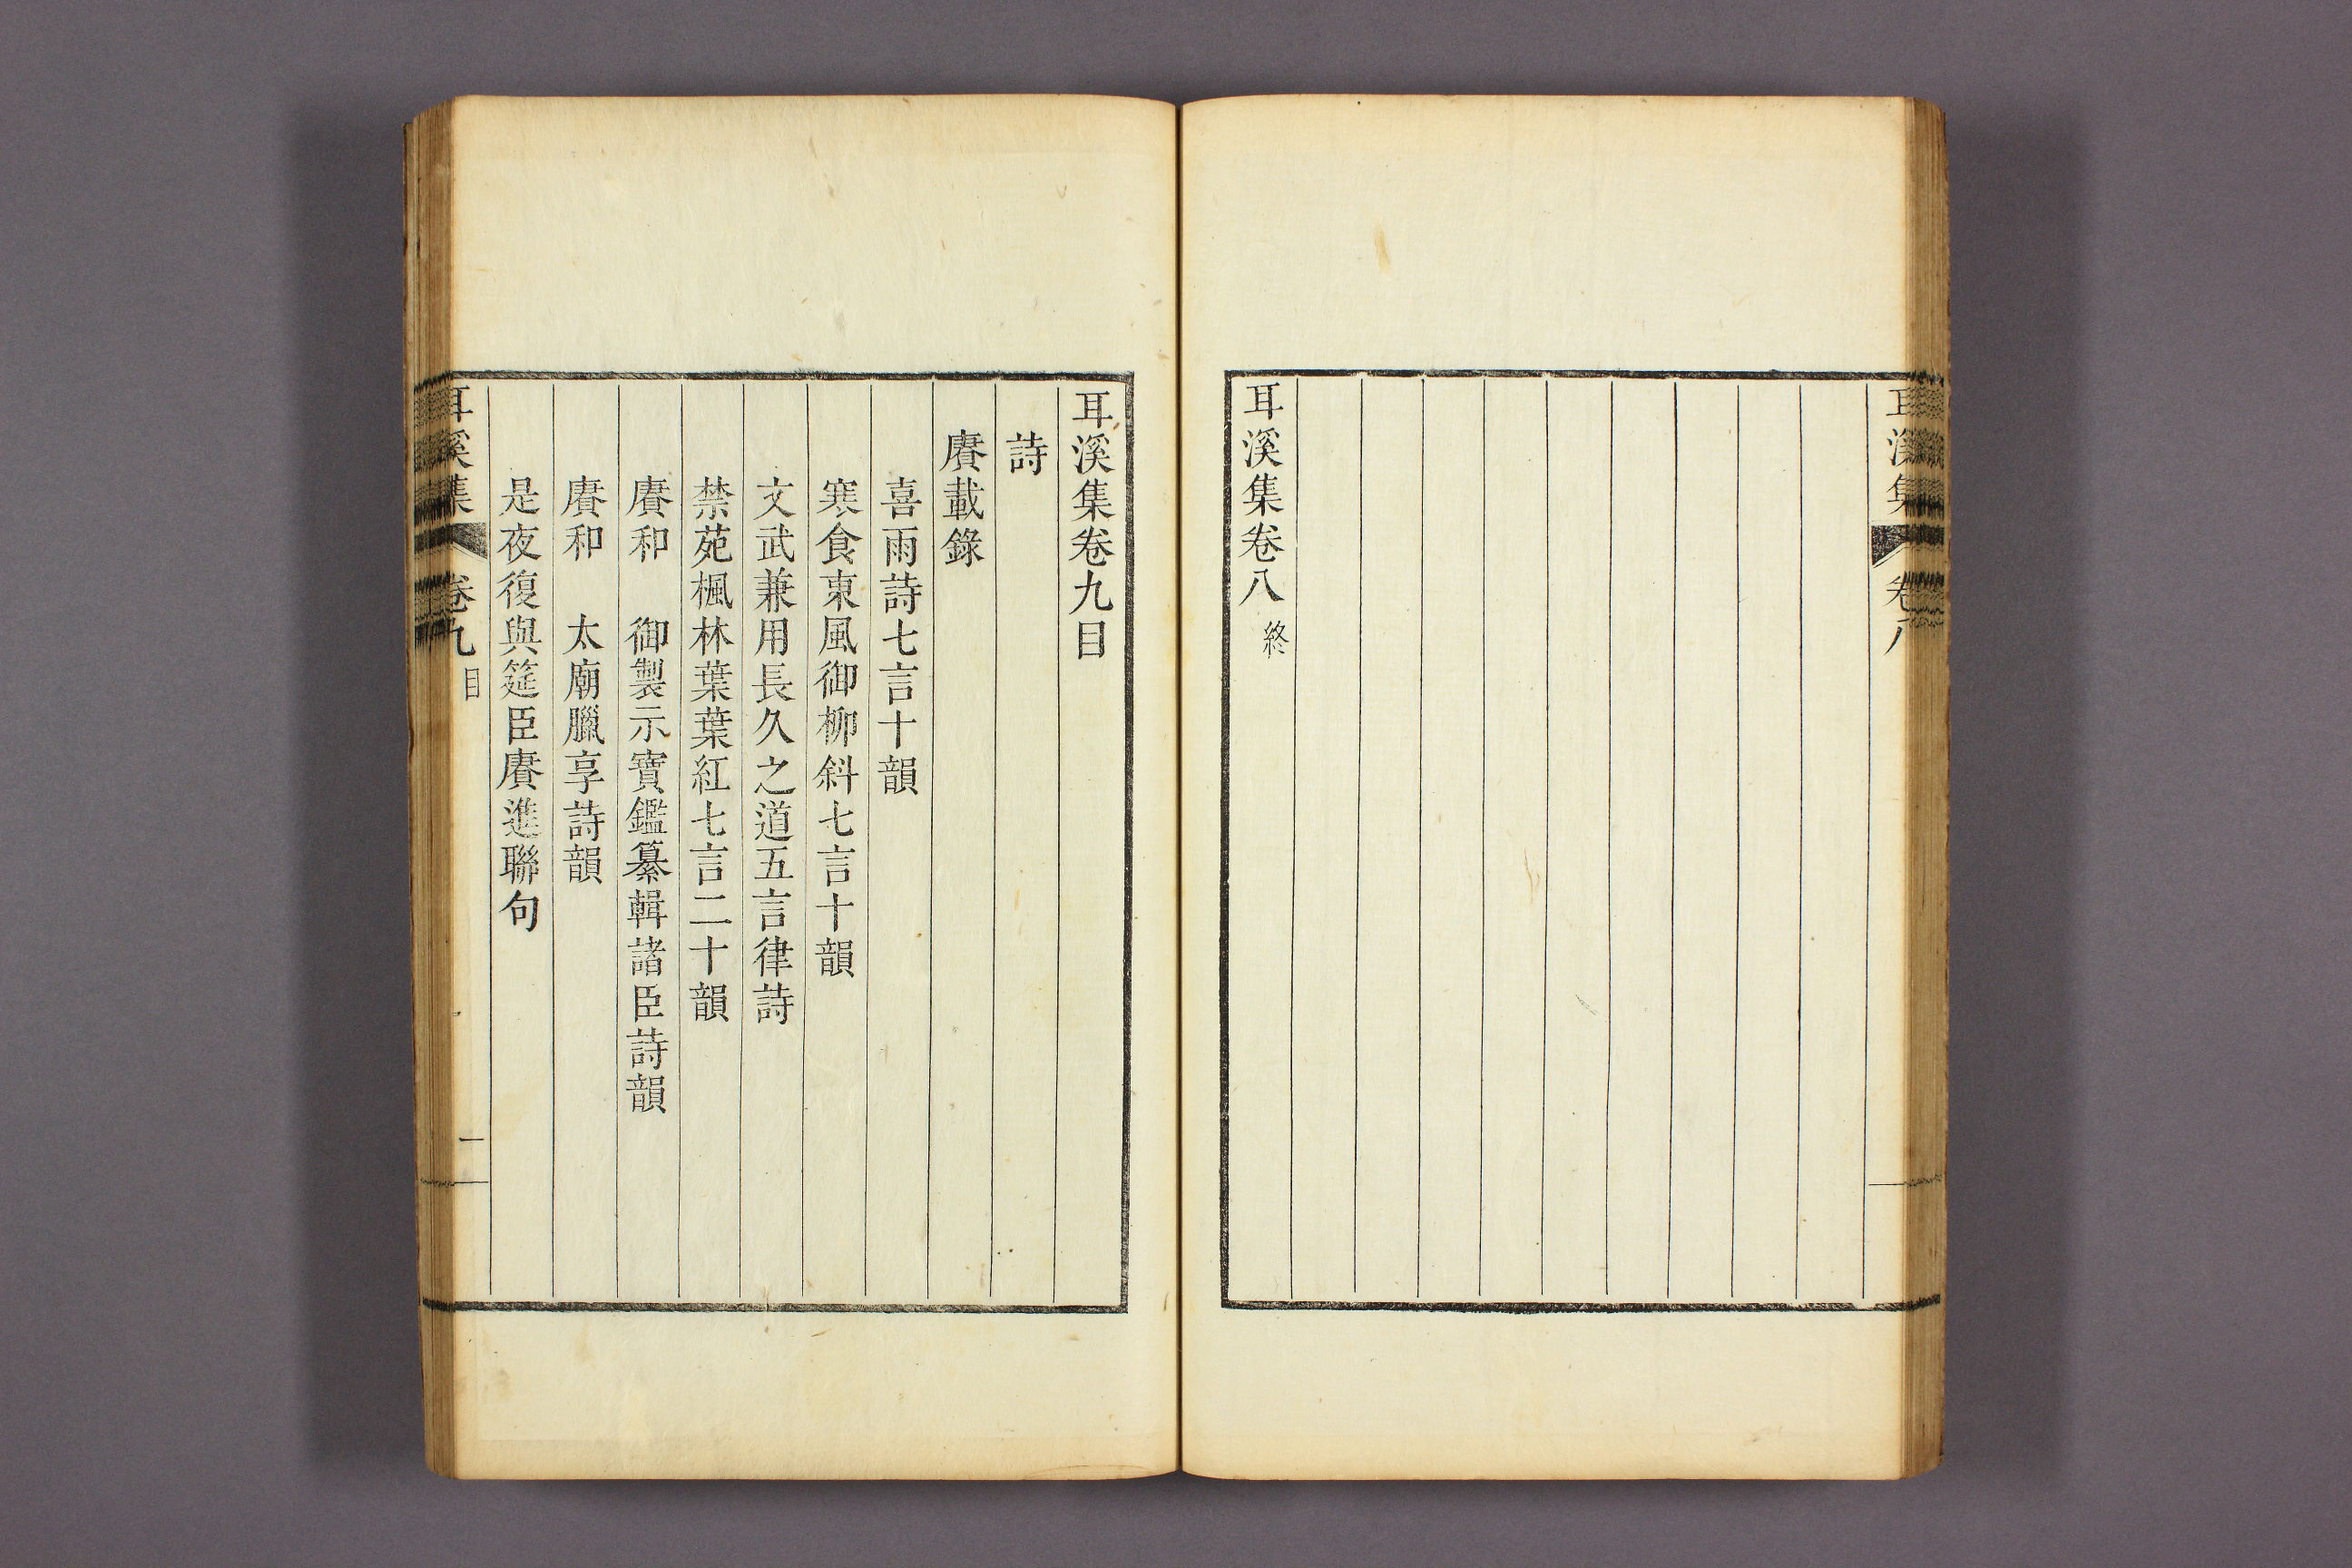 耳溪集 卷八
耳溪集卷八 終
耳溪集卷九目
詩
賡載錄
喜雨詩七言十韻
寒食東風御柳斜七言十韻
文武兼用長久之道五言律詩
禁苑楓林葉葉紅七言二十韻
賡和 御製示寶鑑纂輯諸臣詩韻
賡和 太廟臘享詩韻
是夜復與筵臣賡進聯句
耳溪集 卷九 目 一